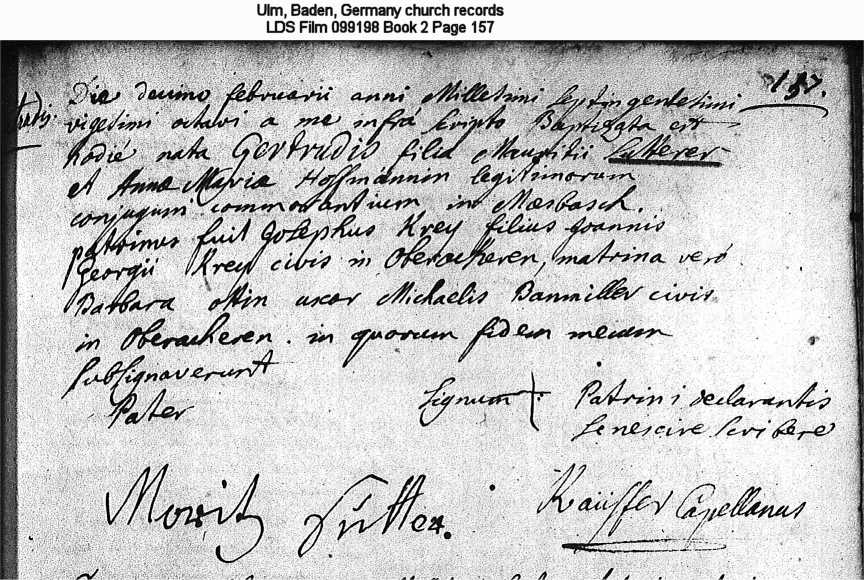 Ulm, Baden, Germany church records
LDS Film 099198 Book 2 Page 157
157.
Die decimo februarii anni Millesimi septingentesimi
vigesimi octavi a me infra scripto Baptizata est
hodie nata Gertrudis filia Mauritii Sutterer
et Annæ Mariæ Hoffmännin legitimorum
conjugum commorantium in Mæsbasch.
patrinus fuit Josephus Krey filius Joannis
Georgii Krey civis in Oberacheren, matrina vero
Barbara ottin uxor Michaelis Banmiller civis
in Oberacheren. in quorum fidem mecum
subsignaverunt
Pater
Signum + Patrini declarantis
se nescire scribere
Moritz Sutter.
Kauffer Capellanus